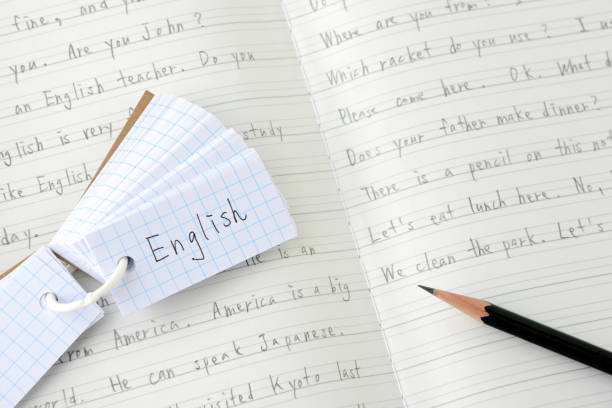 fine, and you?
you. Are you John?
an English teacher. Do you
English is very study
like English
day.
English
He is an
from America. America is a big
world. He can speak Japanese.
visited Kyoto last
Do
Where are you from?
Which racket do you use? I
Please come here. O.K. What
Does your father make dinner?
There is a pencil on this
Let's eat lunch here. No,
We clean the park. Let's